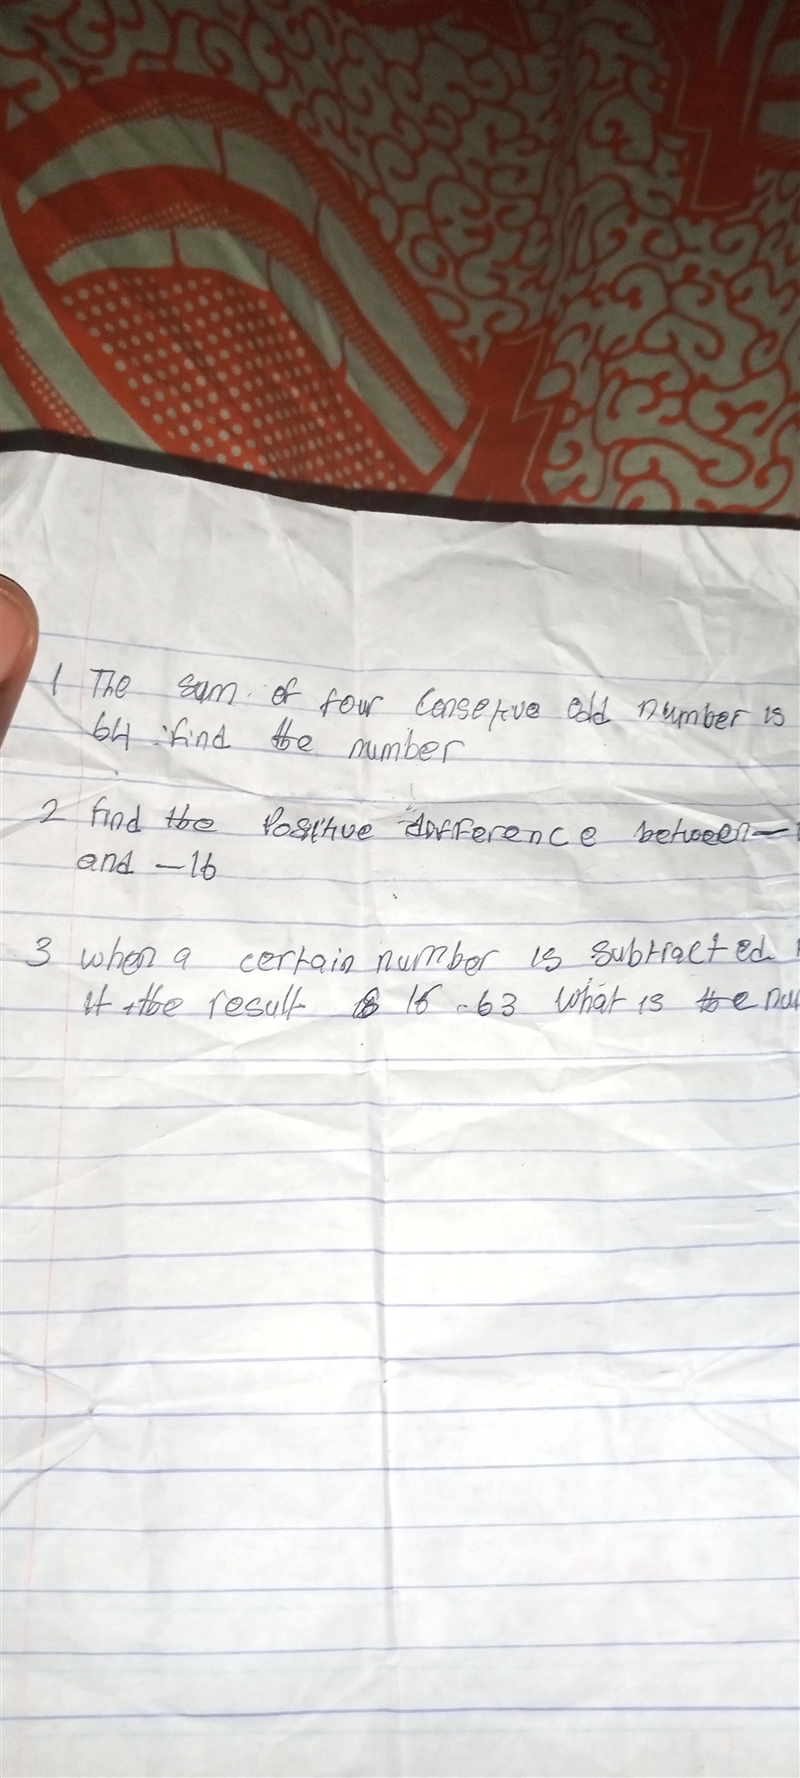 1 The sum of four Consetive odd number is
64 find the number
2 find the Positive difference between —
and -16
3 when a certain number is subtracted
it the result is 16 -63 What is the